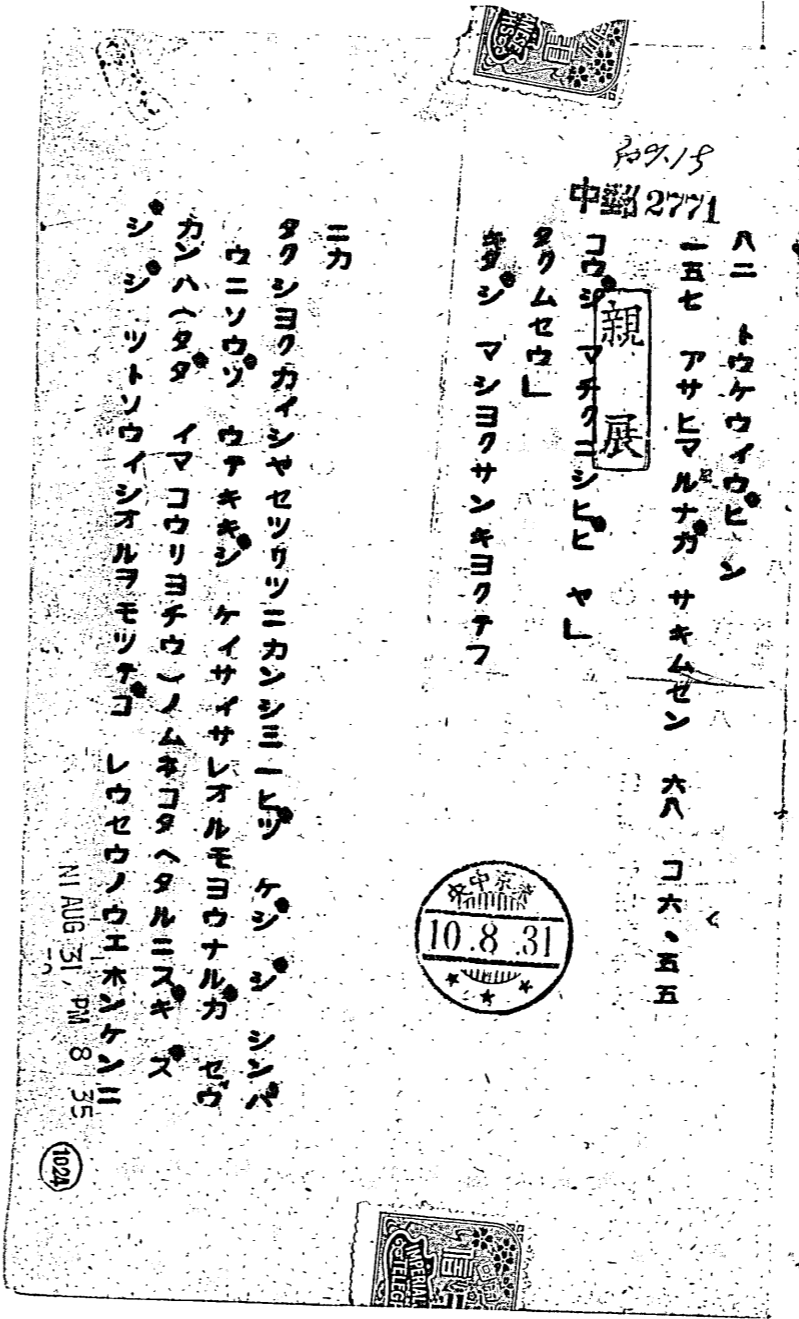 中郵2771
八二 トウケウイウビ ン
一五七 アサヒマルナガ サキムセン 六八 コ六・五五
親展
コウジ マチクニシヒビ ヤ」
タクムセウ」
キダジ マシヨクサンキヨクテフ
10.8.31
ニカ
タクシヨクカイシヤセツリツニカンシ三一ヒヅ ケジ ジ シンパ
ウニソウゾ ウテキキジ ケイサイサレオルモヨウナルガ セヴ
カンハ(タダ イマコウリヨチウ)ノムネコタヘタルニスギ ズ
ジ ジ ツトソウイシオルヲモツテゴ レウセウノウエホンケンニ
N1 AUG 31, PM 8 35
1024